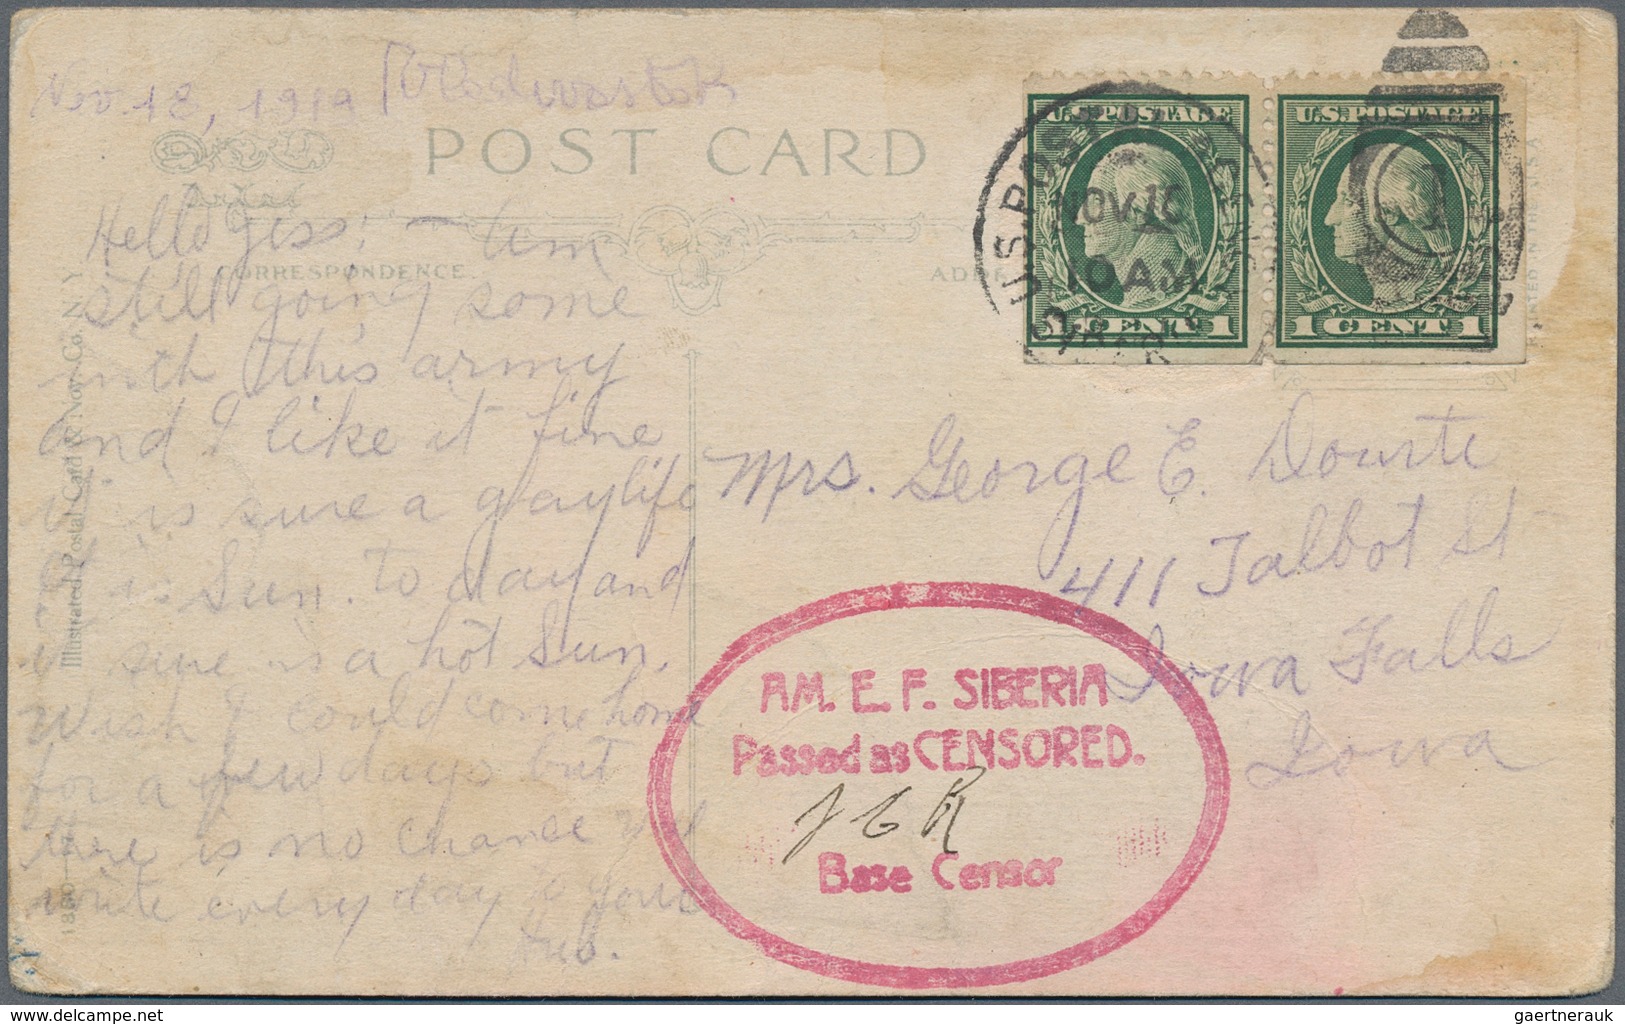 Nov. 18, 1919 Vladivostok
POST CARD
CORRESPONDENCE
Hello Jess; — Am
still going some
with this army
and I like it fine
it is sure a gay life
it is Sun. to day and
it sure is a hot Sun.
Wish I could come home
for a few days but
there is no chance
write every day to your
Hub.
Illustrated Postal Card & Nov. Co. N.Y.
U.S. POSTAGE
CENT 1
U.S. POSTAGE
1 CENT 1
U.S. POST
NOV 16
10 AM
Mrs. George E. Dourte
411 Talbot St
Iowa Falls
Iowa
AM. E. F. SIBERIA
Passed as CENSORED.
Base Censor
PRINTED IN THE U.S.A.
www.delcampe.net
gaertnerauk